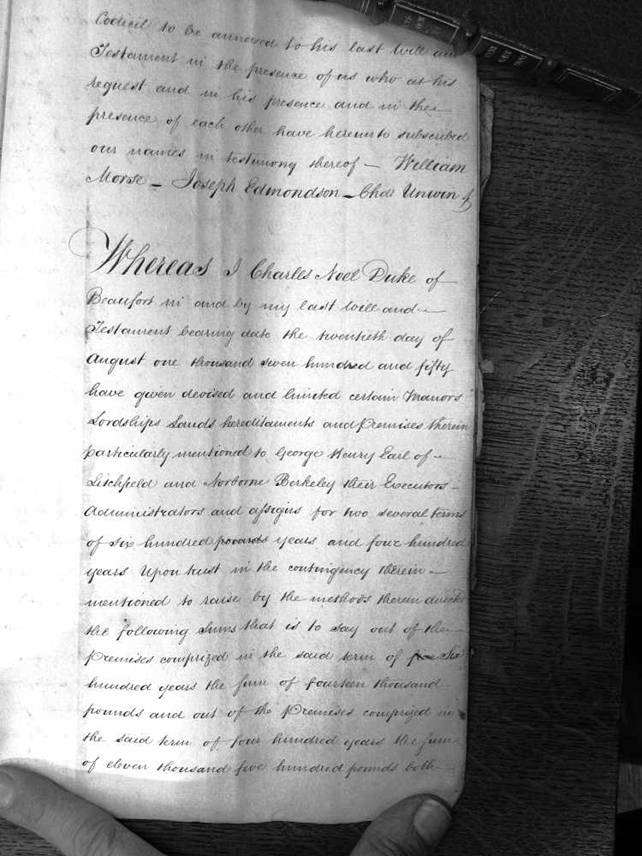 Codicil to be annexed to his last Will and
Testament in the presence of us who at his
request and in his presence and in the
presence of each other have hereunto subscribed
our names in testimony thereof — William
Morse — Joseph Edmondson — Chas Unwin
Whereas I Charles Noel Duke of
Beaufort in and by my last Will and
Testament bearing date the twentieth day of
August one thousand seven hundred and fifty
have given devised and limited certain Manors
Lordships Lands hereditaments and Premises therein
particularly mentioned to George Henry Earl of
Litchfield and Norborne Berkeley their Executors
Administrators and assigns for two several terms
of six hundred years and four hundred
years Upon trust in the contingency therein
mentioned to raise by the methods therein directed
the following Sums that is to say out of the
Premises comprized in the said term of Six
hundred years the sum of fourteen thousand
pounds and out of the Premises comprized in
the said term of four hundred years the sum
of eleven thousand five hundred pounds both